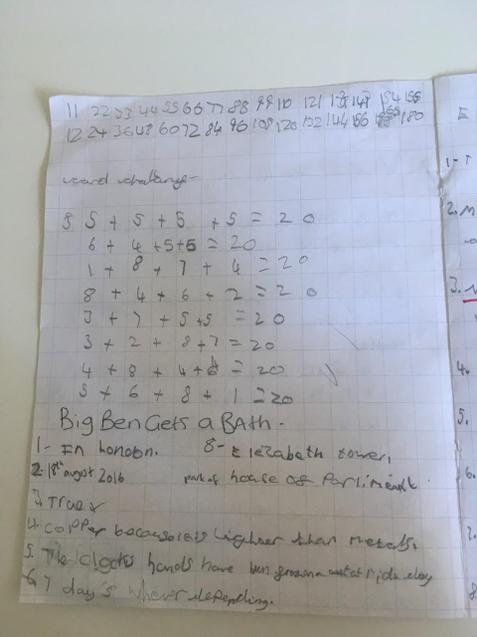 11 22 33 44 55 66 77 88 99 110 121 154 155
12 24 36 48 60 72 84 96 108 120 132 144 156 180
word challenge-
8 5 + 5 + 5 + 5 = 20
6 + 4 + 5 + 5 = 20
1 + 8 + 7 + 4 = 20
8 + 4 + 6 + 2 = 20
3 + 7 + 5 + 5 = 20
3 + 2 + 8 + 7 = 20
4 + 8 + 4 + = 20
5 + 6 + 8 + 1 = 20
Big Ben Gets a BAth.
1- In London. 8- Elezabeth tower,
2. 18th august 2016 part of house of Parliment.
3. True
4. Copper because is lighter than metels.
5. The clocks hands have ben day
6 7 day's depending.
1-
2. M
3.
4.
5.
6.
7.
8